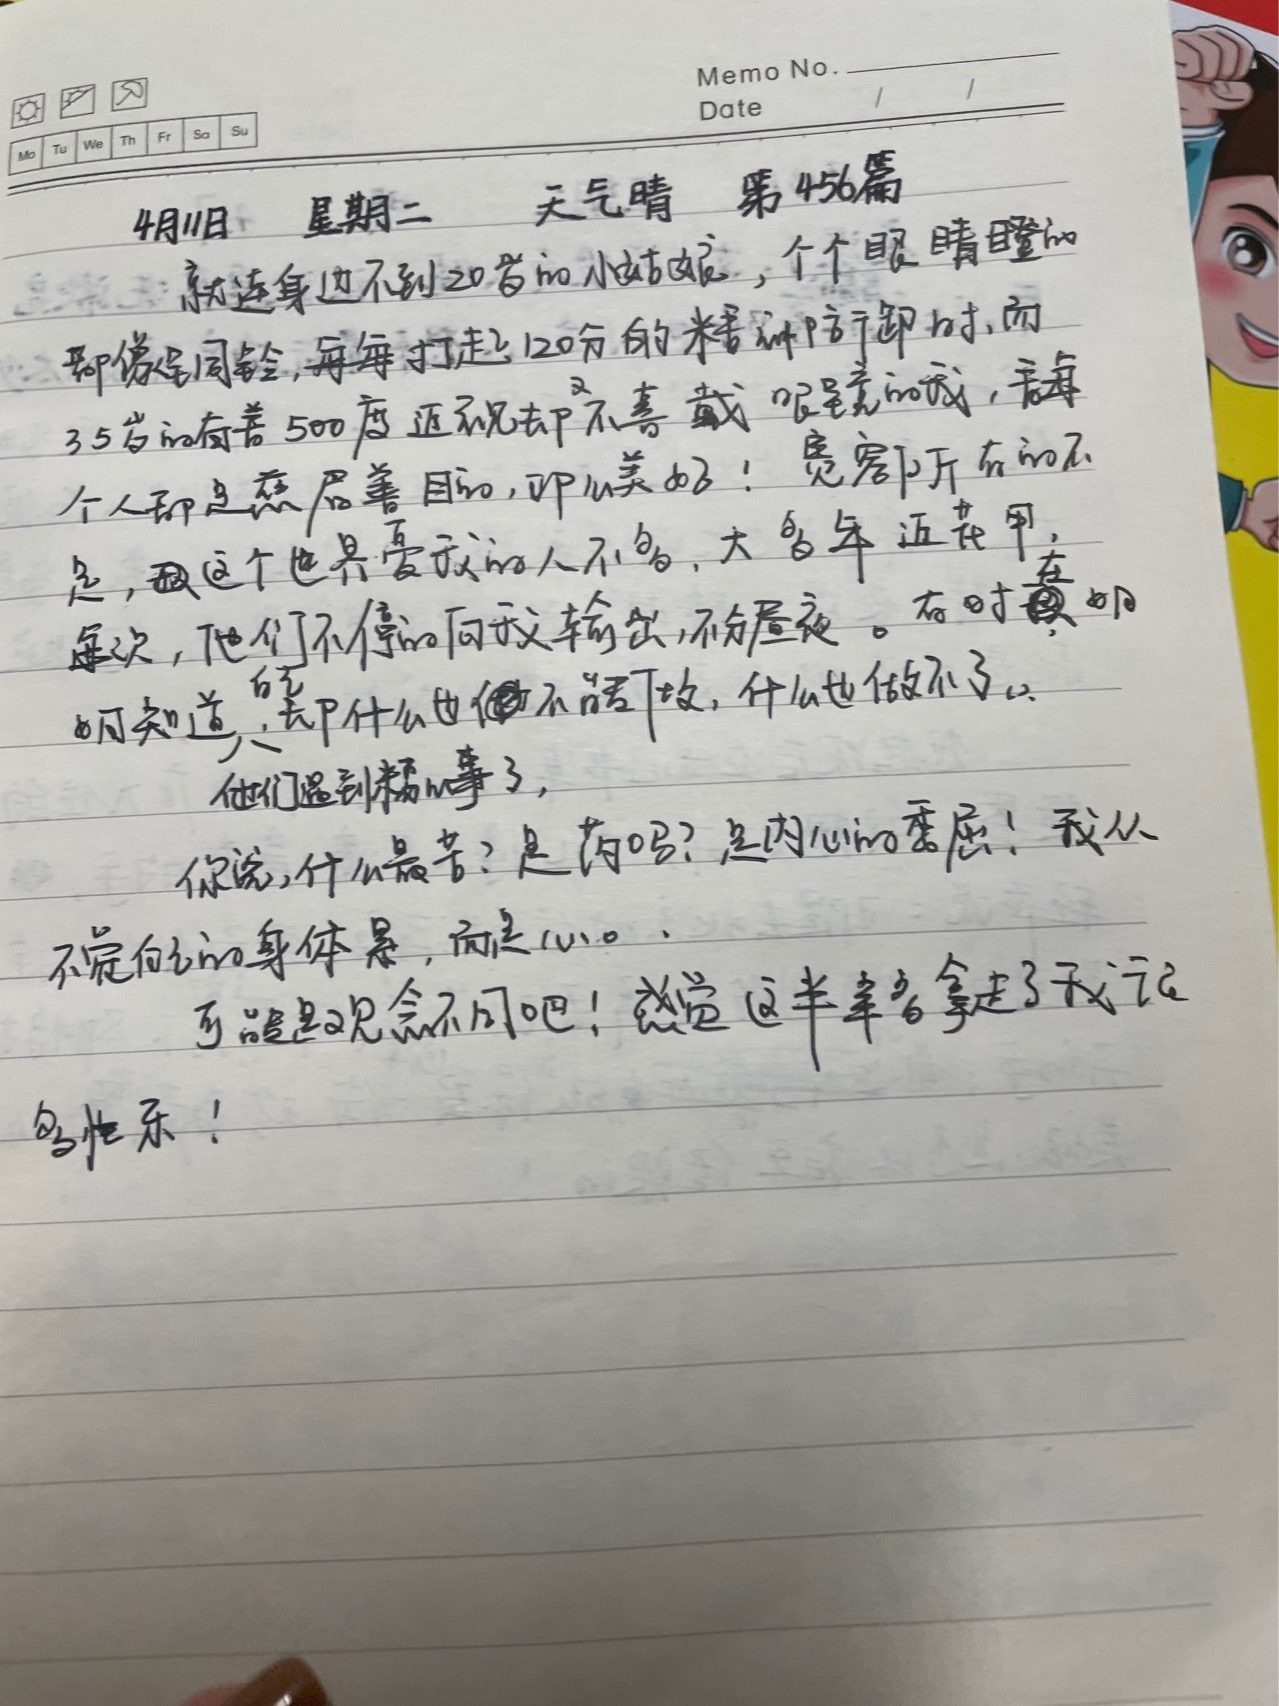 Memo No.
Date / /
Mo Tu We Th Fr Sa Su
4月11日 星期二 天气晴 第456篇
就连身边不到20岁的小姑娘，个个眼睛瞪的
都像是同铃，每每打起120分的精神防卸时，而
35岁的有着500度近视却又不喜戴眼镜的我，看每
个人都是慈眉善目的，那么美好！宽容所有的不
是，这个世界爱我的人不多，大多年近花甲，
每次，他们不停的向我输出，不分昼夜。有时在明
明知道他们遇到糟心事了，自己却什么也不能做，什么也做不了。
你说，什么最苦？是药吗？是内心的委屈！我从
不觉自己的身体累，而是心。
可能是观念不同吧！感觉这半辈多拿走了我许
多快乐！